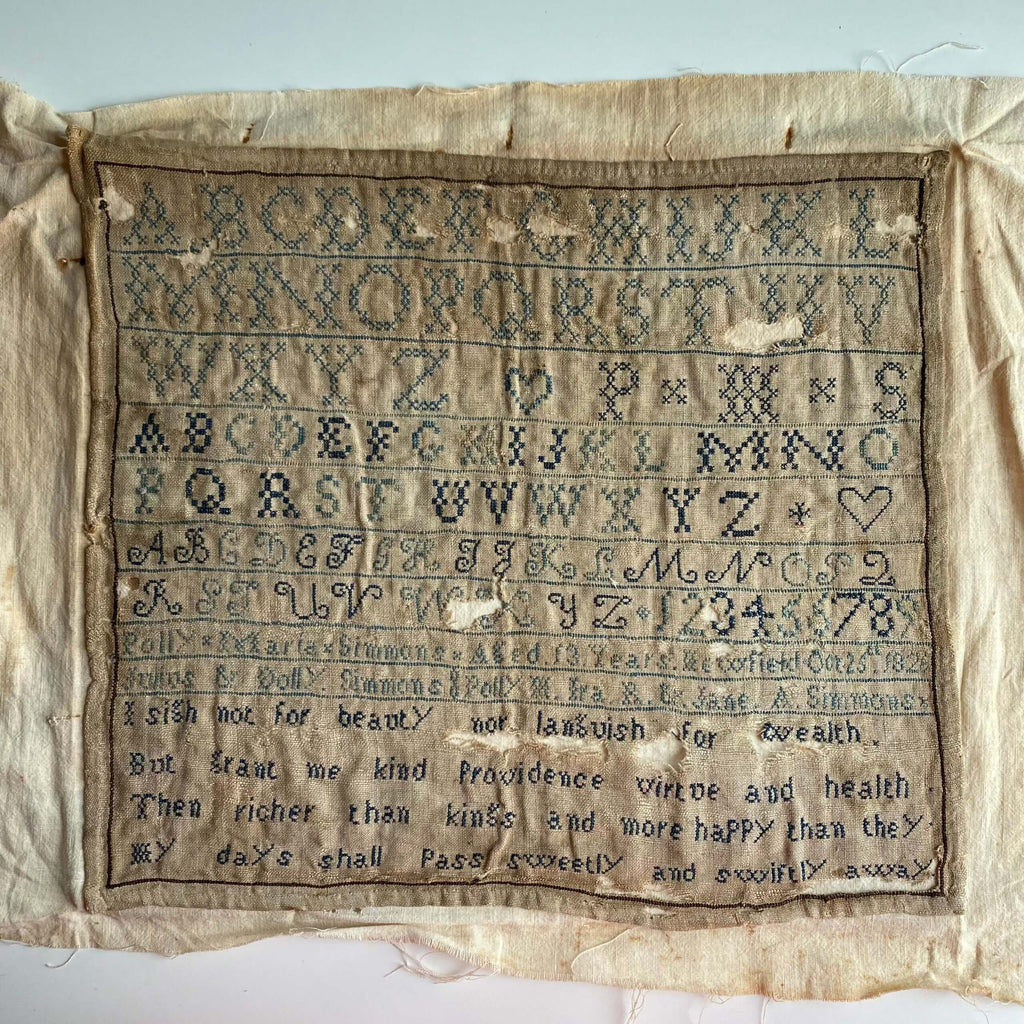 A B C D E F G H I J K L
M N O P Q R S T U V
W X Y Z ♡ P × M × S
A B C D E F G H I J K L M N O
P Q R S T U V W X Y Z * ♡
A B C D E F G H I J K L M N O P Q
R S T U V W X Y Z * 1 2 3 4 5 6 7 8 9
Polly × Maria × Simmons × Aged 13 Years. Newfield Oct 25th
& Polly Simmons Polly M. Ira R. & Jane A. Simmons
I sigh not for beauty nor languish for wealth.
But grant me kind Providence virtue and health
Then richer than kings and more happy than they.
My days shall Pass sweetly and swiftly away